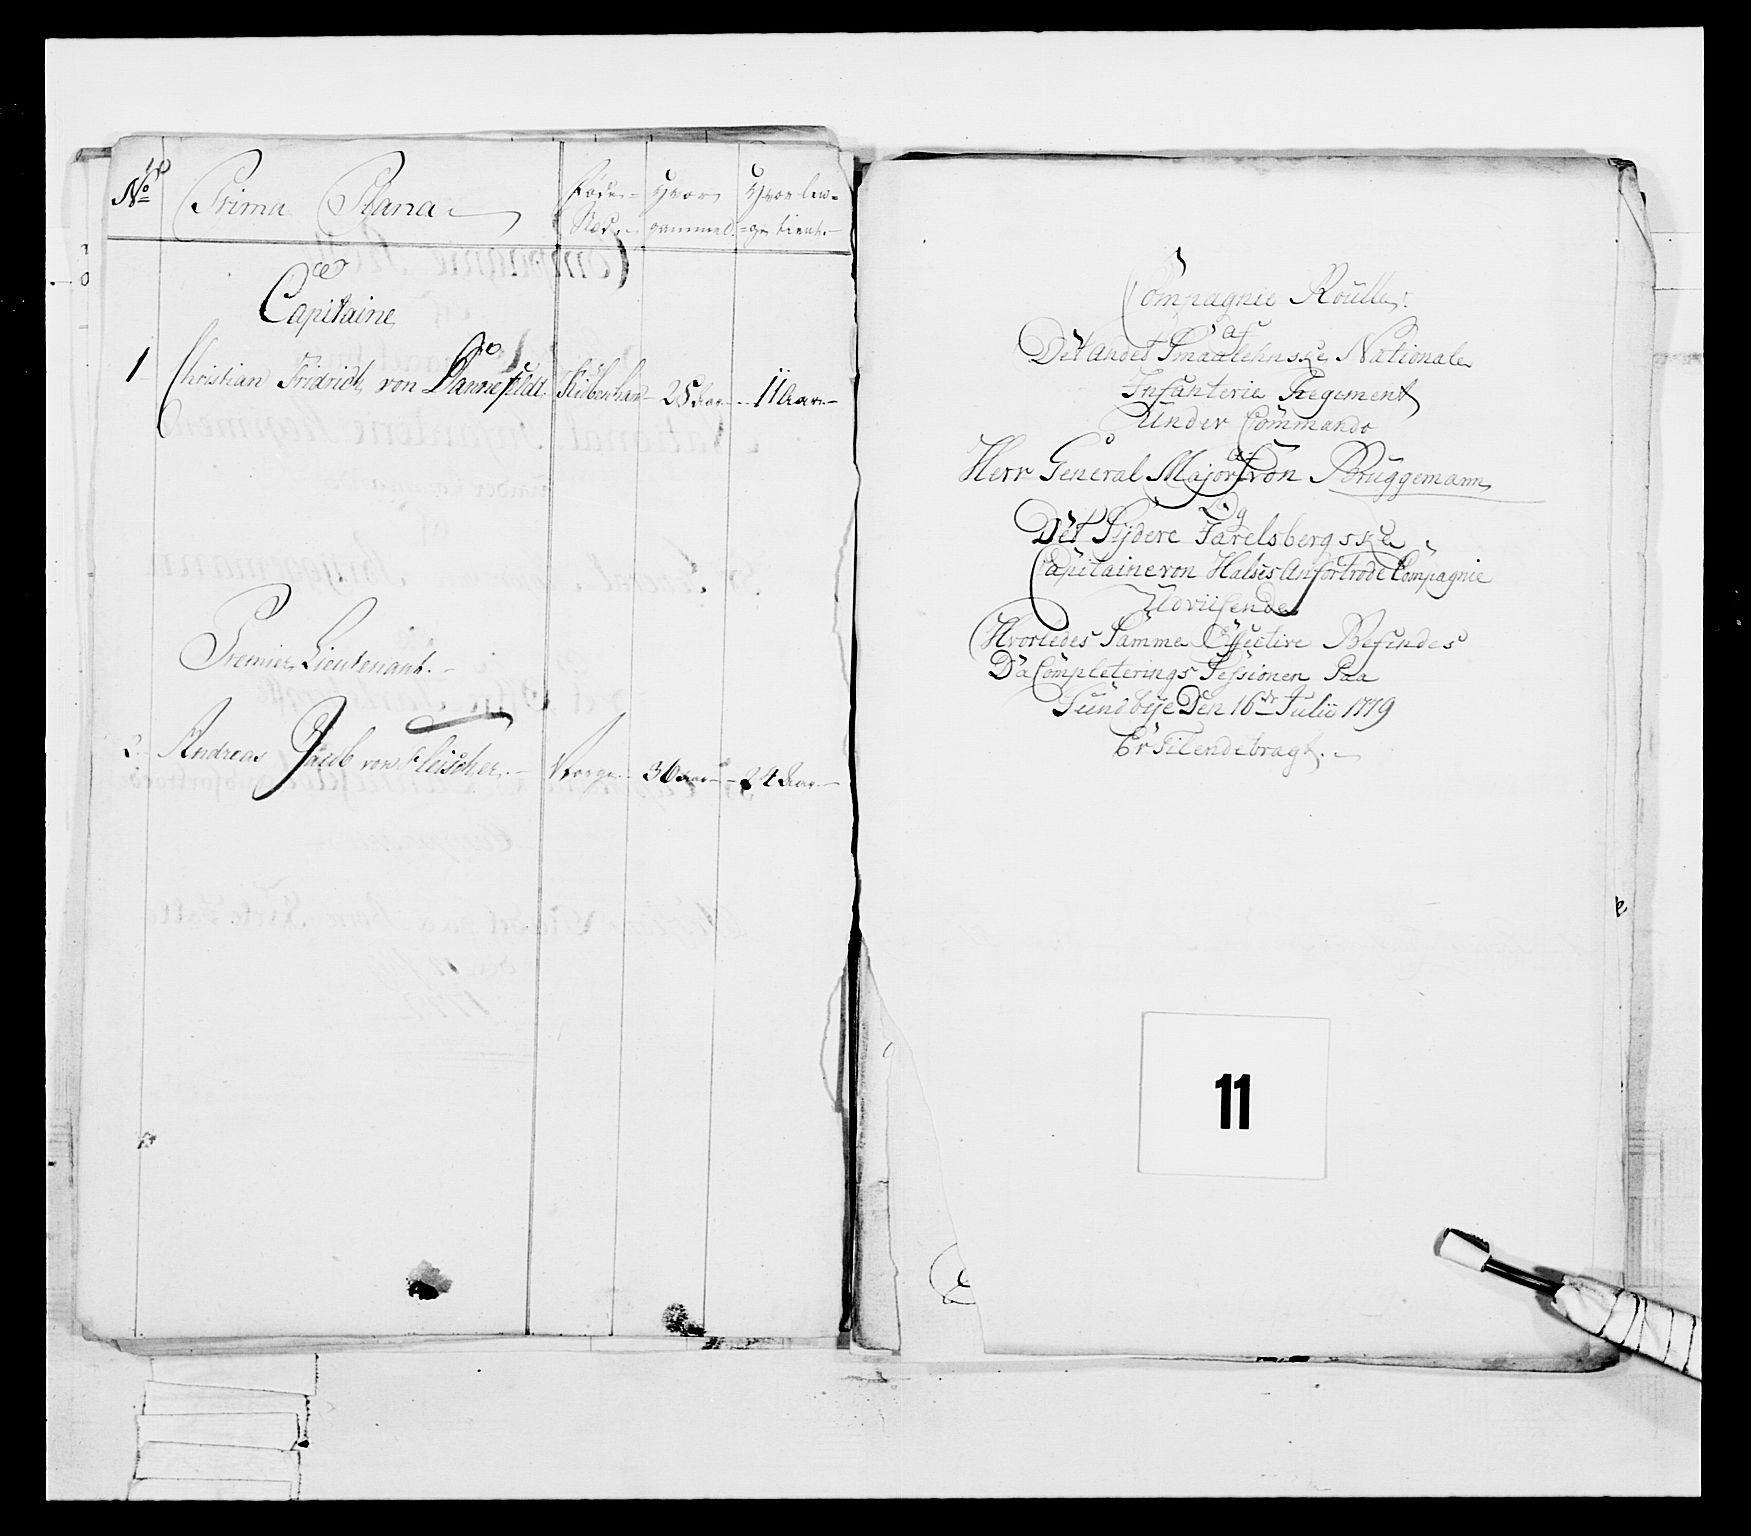 No
Prima Plana
Føde-
Stæd.
Hvor
gammel.
Hvor læn-
ge tient.
Capitaine
1 Christian Fridrich von Dannefeldt Kiöbenhavn 28 Aar 11 Aar
Premier Lieutenant.
2. Andreas Jacob von Fleischer Norge 36 Aar 24 Aar
Compagnie Roulle
af
Det Andet Smaalehnske Nationale
Infanterie Regement
Under Commando
af
Herr General Major von Brüggemann
Og
Det Sÿdere Jarelsbergske
Capitaine von Halses Anfortrode Compagnie
Udviisende
Hvorledes Samme Effective Befindes
Da Completerings Sessionen Paa
Sundbÿe Den 16de Julii 1779
Er Tilendebragt.
11